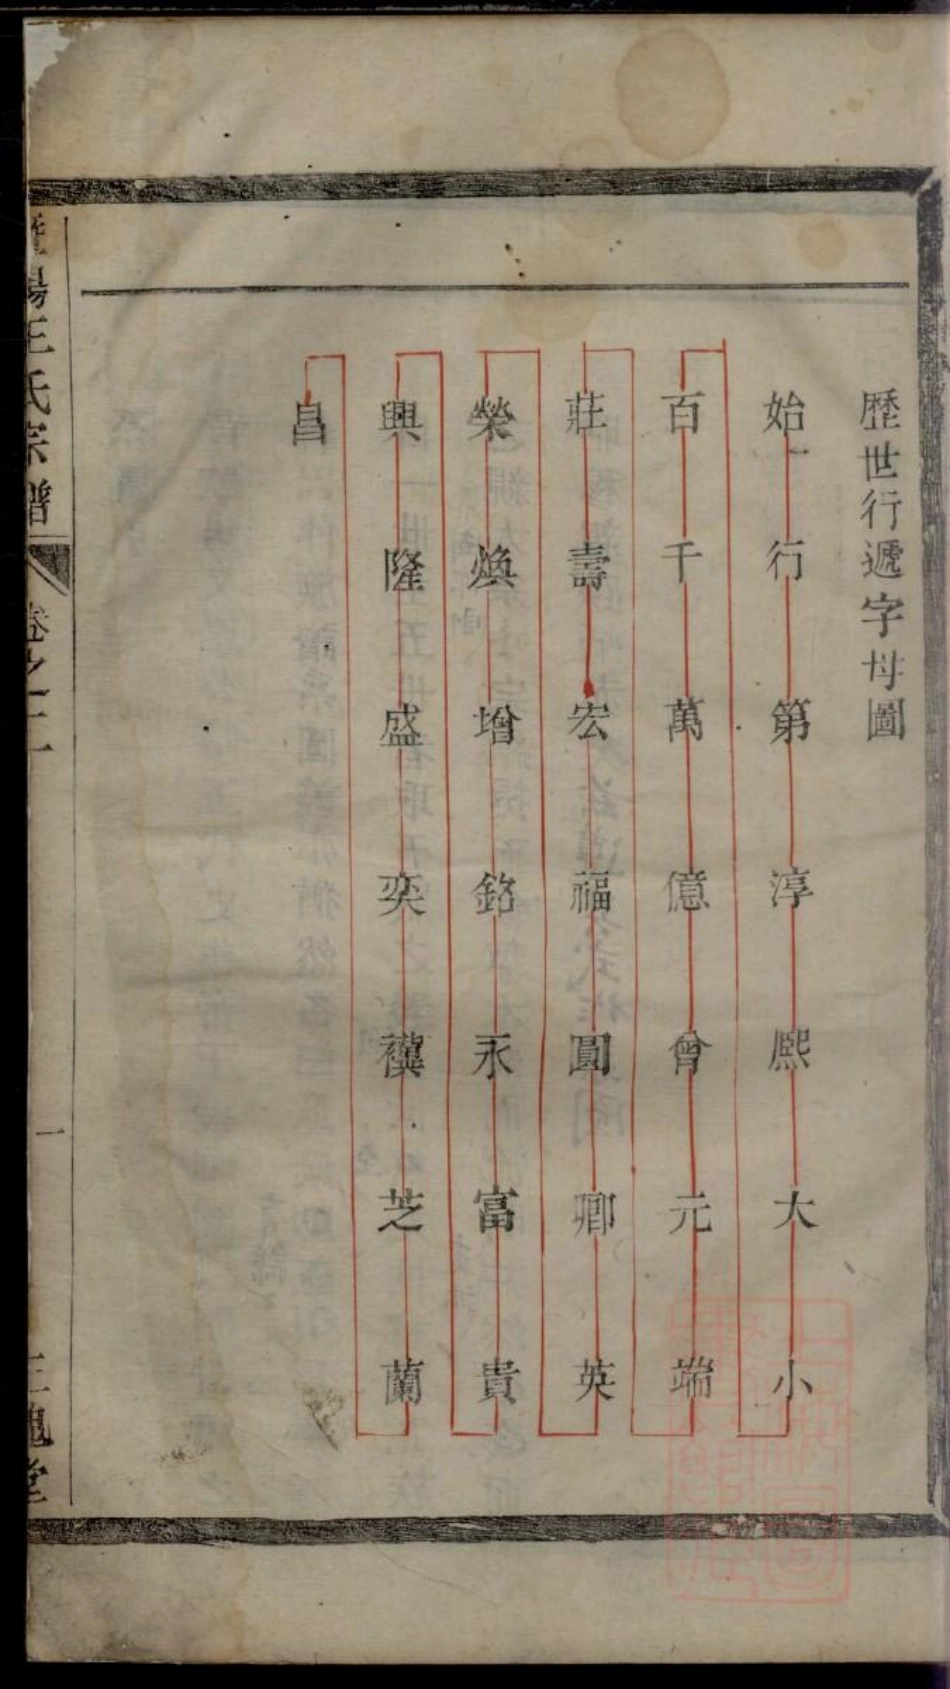 歷世行遞字母圖
始一行第淳熙大小
百千萬億曾元端
莊壽宏福圓卿英
榮煥增銘永富貴
興隆盛奕襀芝蘭
昌
暨陽王氏宗譜
卷之二
一
三槐堂